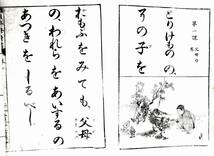 第一課 父母の恩
とりけものの、
その子を
おもふをみても、父母
の、われらをあいするの
あつきをしるべし